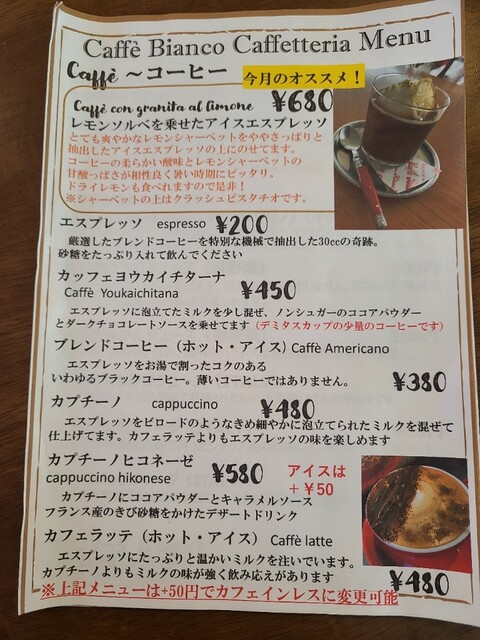 Caffè Bianco Caffetteria Menu
Caffè ～コーヒー 今月のオススメ！
Caffè con granita al limone ¥680
レモンソルベを乗せたアイスエスプレッソ
とても爽やかなレモンシャーベットをややさっぱりと
抽出したアイスエスプレッソの上にのせてます。
コーヒーの柔らかい酸味とレモンシャーベットの
甘酸っぱさが相性良く暑い時期にピッタリ。
ドライレモンも食べれますので是非！
※シャーベットの上はクラッシュピスタチオです。
エスプレッソ espresso ¥200
厳選したブレンドコーヒーを特別な機械で抽出した30ccの奇跡。
砂糖をたっぷり入れて飲んでください
カッフェヨウカイチターナ
Caffè Youkaichitana ¥450
エスプレッソに泡立てたミルクを少し混ぜ、ノンシュガーのココアパウダー
とダークチョコレートソースを乗せてます（デミタスカップの少量のコーヒーです）
ブレンドコーヒー（ホット・アイス）Caffè Americano
エスプレッソをお湯で割ったコクのある
いわゆるブラックコーヒー。薄いコーヒーではありません。 ¥380
カプチーノ cappuccino ¥480
エスプレッソをビロードのようなきめ細やかに泡立てられたミルクを混ぜて
仕上げてます。カフェラテよりもエスプレッソの味を楽しめます
カプチーノヒコネーゼ
cappuccino hikonese ¥580 アイスは
＋¥50
カプチーノにココアパウダーとキャラメルソース
フランス産のきび砂糖をかけたデザートドリンク
カフェラッテ（ホット・アイス） Caffè latte
エスプレッソにたっぷりと温かいミルクを注いでいます。
カプチーノよりもミルクの味が強く飲み応えがあります ¥480
※上記メニューは+50円でカフェインレスに変更可能